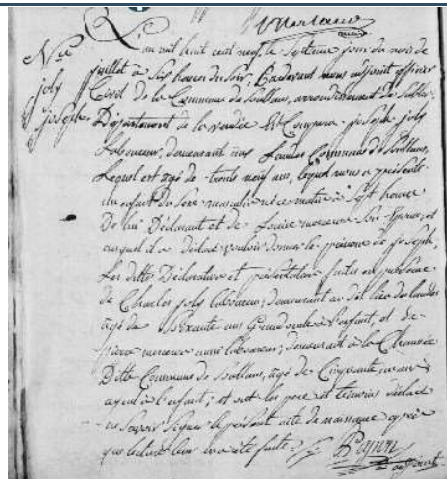 L'an mil huit cent neuf le septieme jour du mois de
Nce juillet à six heures du soir, Pardevant nous adjoint officier
joly Civil de la Commune de Soullans, arrondissement des Sables
joseph Département de la vendée Est Comparu joseph joly
laboureur, demeurant aux Landes Commune de Soullans,
Lequel est agé de trente neuf ans, lequel nous a présenté
un enfant de Sexe masculin né ce matin à Sept heures
De lui Déclarant et de Louise Son Epouse, et
auquel il a déclaré vouloir donner le prénom de joseph
Les dittes Déclaration et présentation faites en présence
de Charles joly laboureur, demeurant au dit lieu des landes
agé de Soixante ans à l'enfant, et de
pierre laboureur, demeurant à la Chaussée
Ditte Commune de Soullans, agé de Cinquante ans
ayeul à l'enfant; et ont les pere et témoins déclaré
ne Savoir Signer le présent acte de naissance après
que lecture leur en a été faite.
adjoint